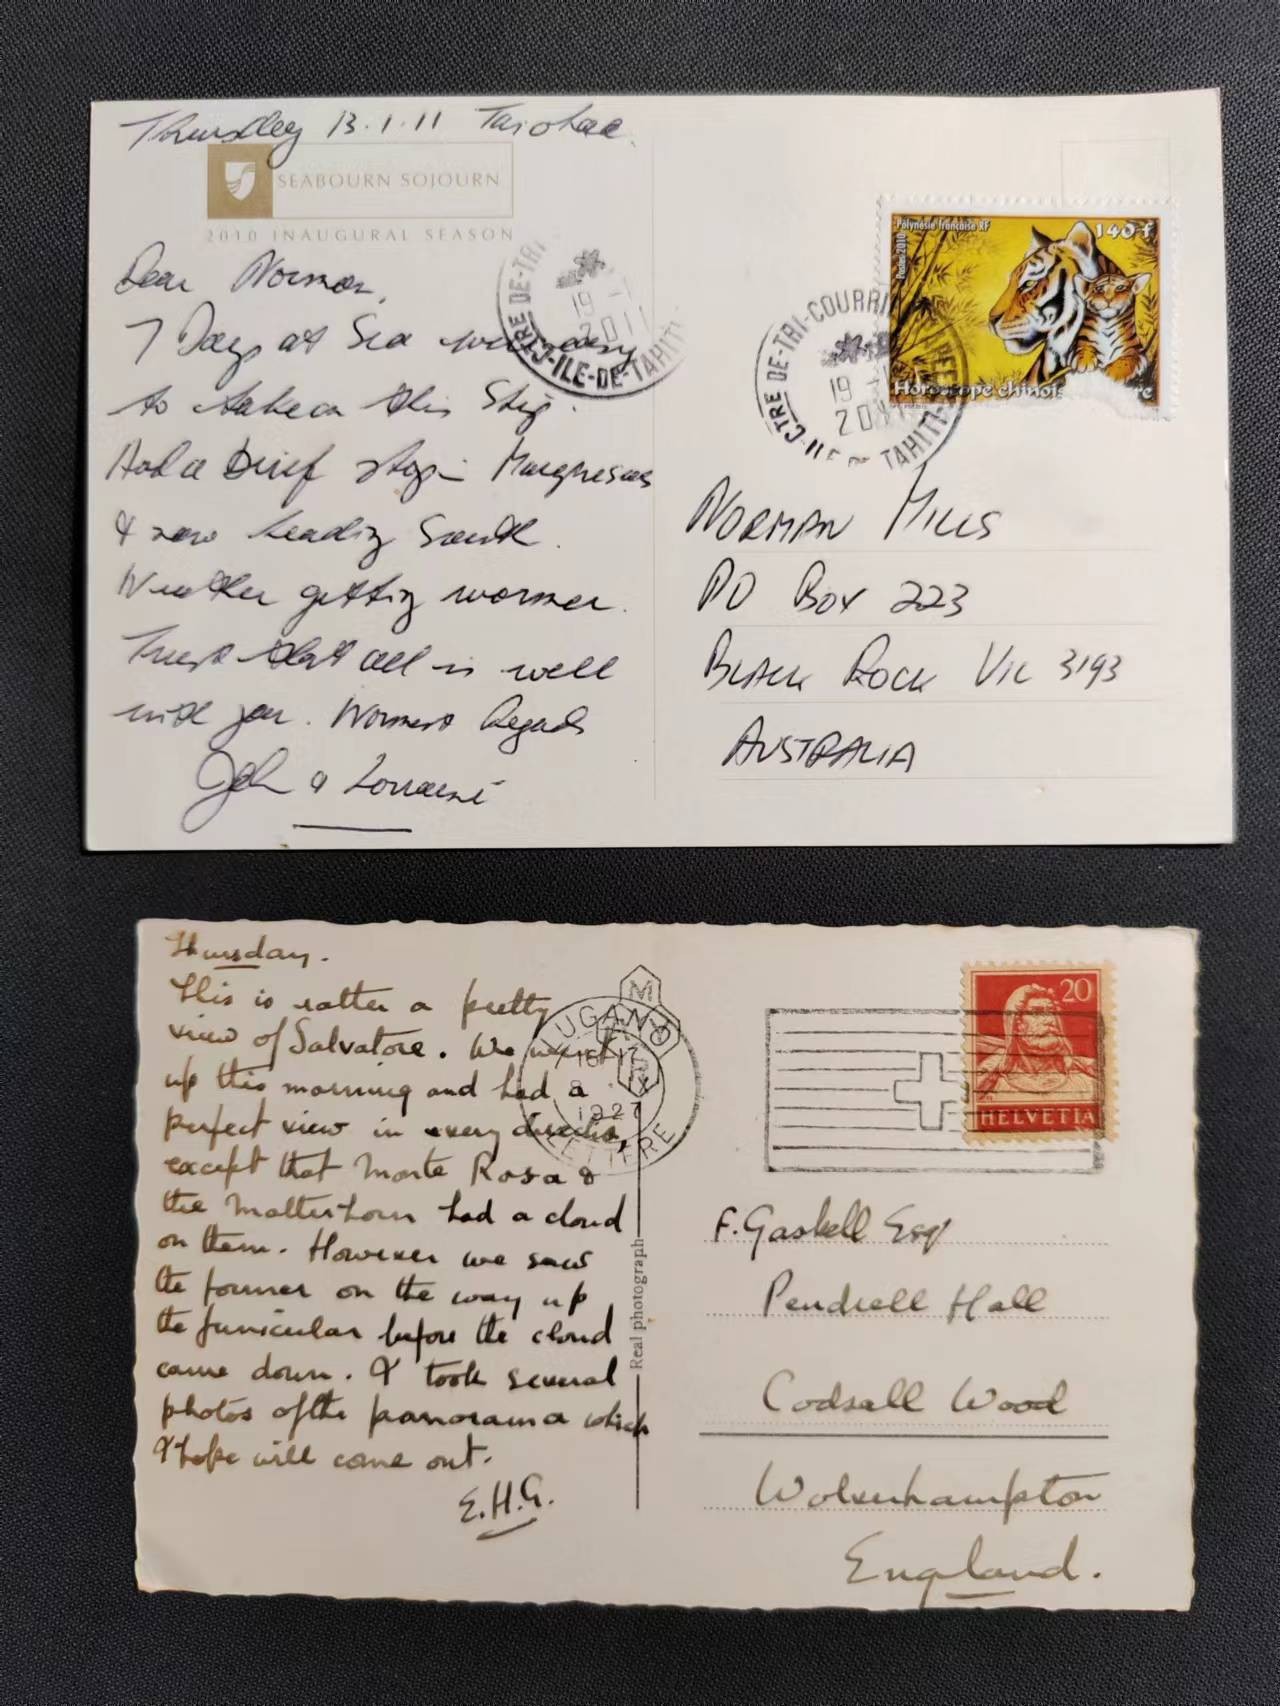 Thursday 13.1.11 Taiohae.
SEABOURN SOJOURN
2010 INAUGURAL SEASON
Dear Norman,
7 Days at Sea was easy
to take on this Ship.
Had a brief stop in Marquesas
& now heading South.
Weather getting warmer.
Trust that all is well
with you. Warmest Regards
John & Lorraine
CTRE DE-TRI
19
2011
ILE-DE-TAHITI
CTRE DE-TRI-COURRI
19
TAHITI
Polynésie française RF
140 F
Postes 2010
Horoscope chinois
NORMAN MILLS
PO BOX 223
BLACK ROCK VIC 3193
AUSTRALIA
Thursday.
This is rather a pretty
view of Salvatore. We went
up this morning and had a
perfect view in every direction,
except that Monte Rosa &
the Matterhorn had a cloud
on them. However we saw
the former on the way up
the funicular before the cloud
came down. I took several
photos of the panorama which
I hope will come out.
E.H.G.
LUGANO
8 IX
1927
LETTERE
Real photograph
20
HELVETIA
F. Gaskell Esqr
Pendrell Hall
Codsall Wood
Wolverhampton
England.